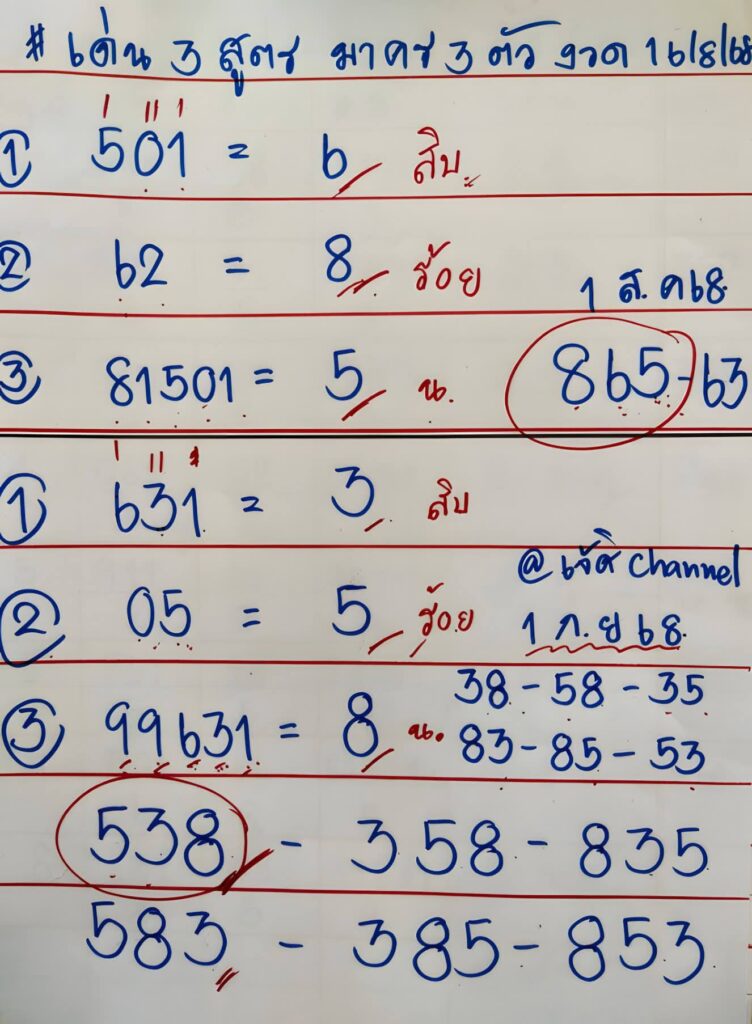 # เด่น 3 สูตร มาครบ 3 ตัว งวด 16/8/68
① 501 = 6 สิบ
② 62 = 8 ร้อย
1 ส.ค 68
③ 81501 = 5 น. 865-63
① 631 = 3 สิบ
@ เจ๊ดิ channel
② 05 = 5 ร้อย 1 ก.ย 68
38 - 58 - 35
③ 99631 = 8 น. 83 - 85 - 53
538 - 358 - 835
583 - 385 - 853